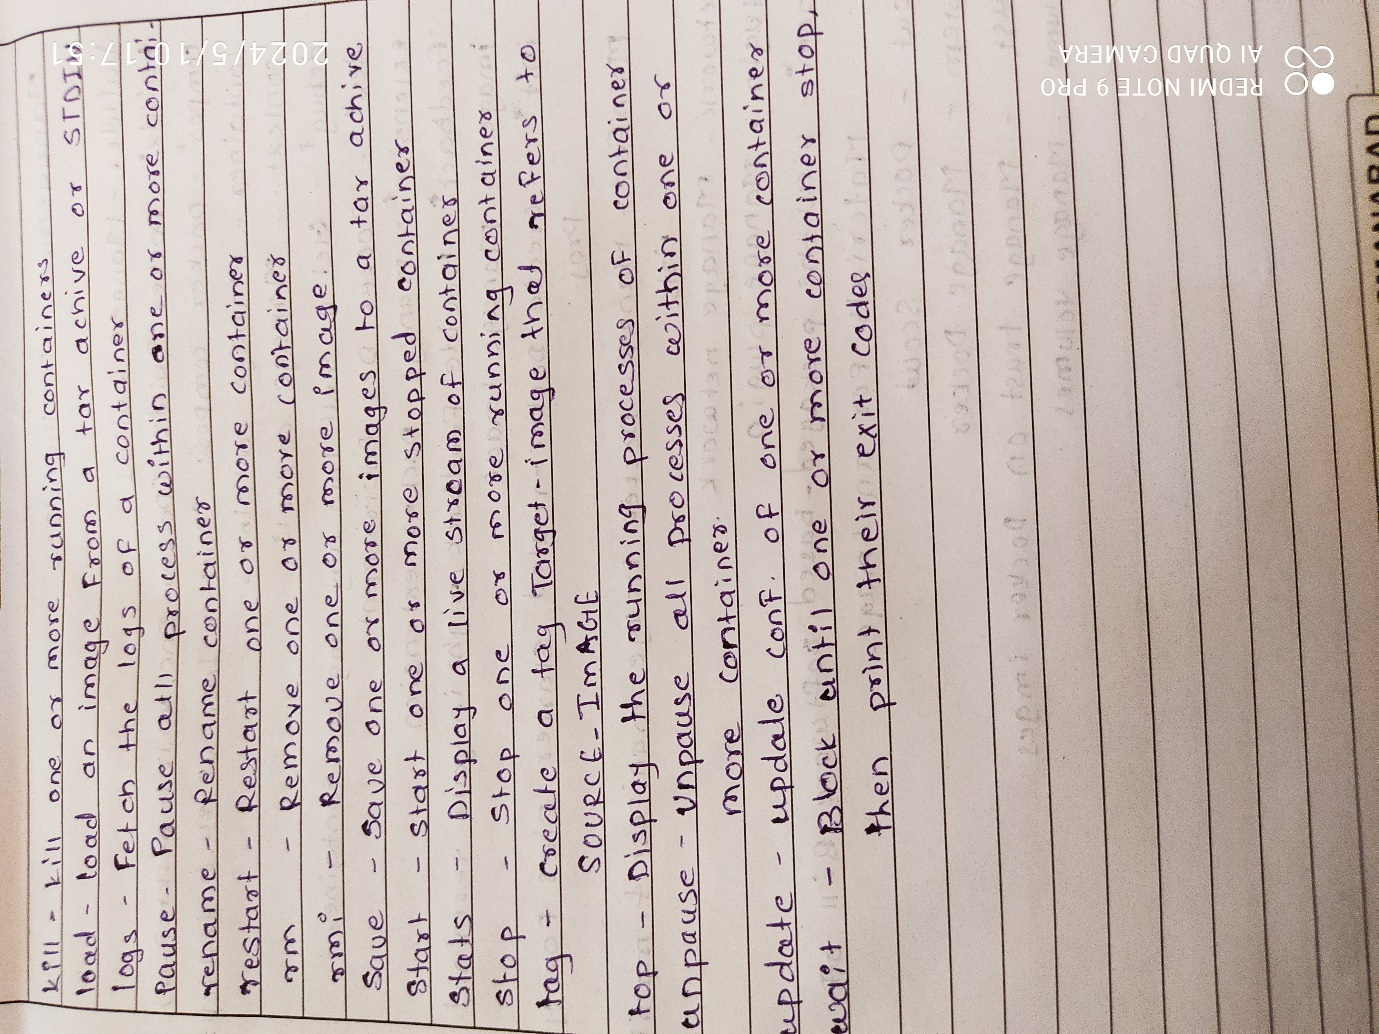 kill - kill one or more running containers
load - load an image From a tar achive or STDI
logs - Fetch the logs of a container
Pause - Pause all process within one or more contai-
rename - Rename container
restart - Restart one or more container
rm - Remove one or more container
rmi - Remove one or more image
Save - Save one or more images to a tar achive
Start - Start one or more stopped container
Stats - Display a live stream of container
stop - Stop one or more running container
tag - create a tag Target-image that refers to
SOURCE-ImAGE
top - Display the running processes of container
unpause - unpause all processes within one or
more container.
update - update conf. of one or more container
wait - Block until one or more container stop,
then print their exit codes
2024/5/10 17:51
REDMI NOTE 9 PRO
AI QUAD CAMERA